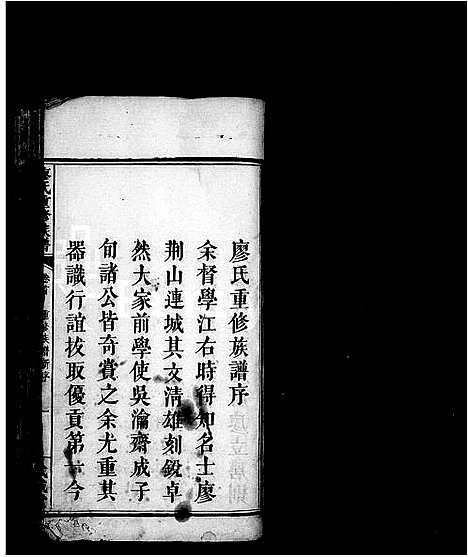 廖氏重修族譜序
余督學江右時得知名士廖
荆山連城其文清雄刻鋭卓
然大家前學使吳瀹齋成子
旬諸公皆奇賞之余尤重其
器識行誼拔取優貢第 今
廖氏重修族譜
卷首
重修族譜新序